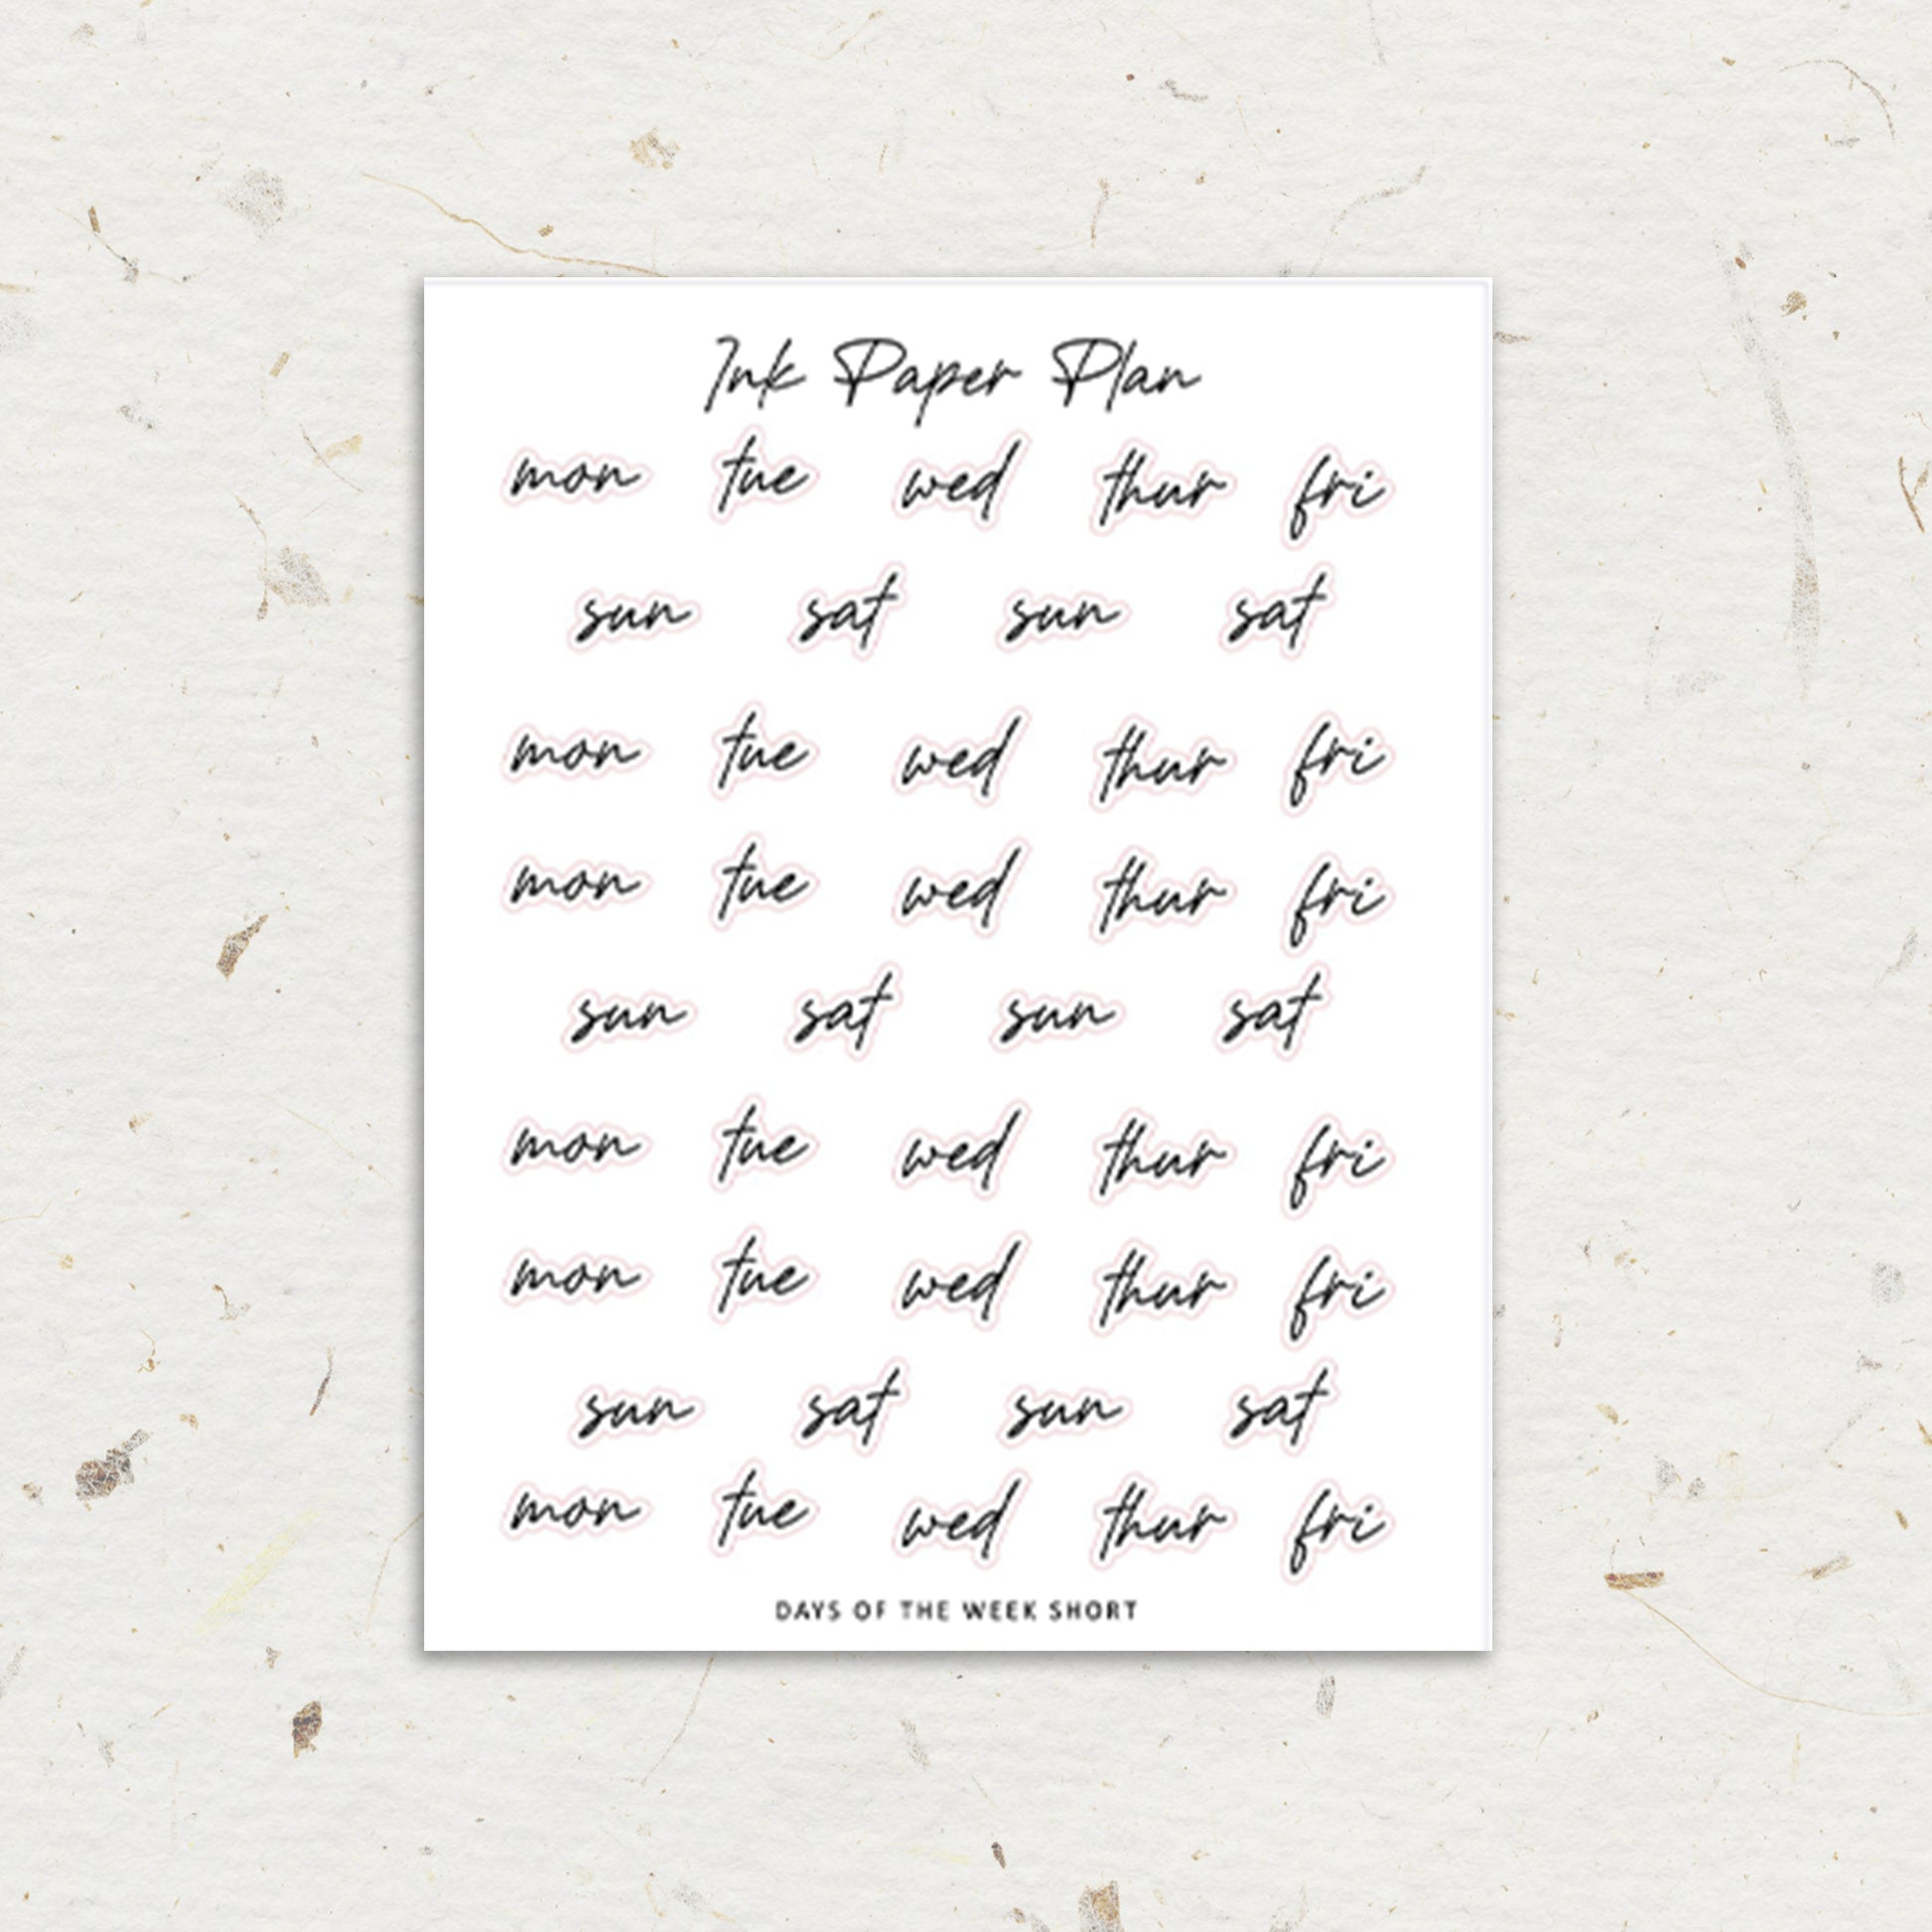 Ink Paper Plan
mon tue wed thur fri
sun sat sun sat
mon tue wed thur fri
mon tue wed thur fri
sun sat sun sat
mon tue wed thur fri
mon tue wed thur fri
sun sat sun sat
mon tue wed thur fri
DAYS OF THE WEEK SHORT